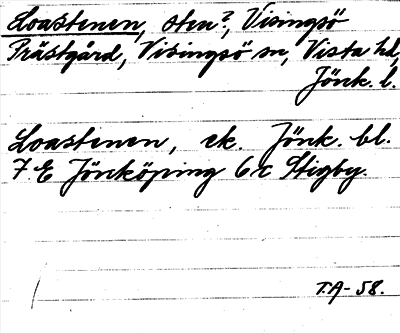 Loastenen, sten?, Visingsö
Prästgård, Visingsö sn, Vista hd,
Jönk. l.
Loastenen, ek. Jönk. bl.
7 E Jönköping 6 c Stigby.
T.A-58.